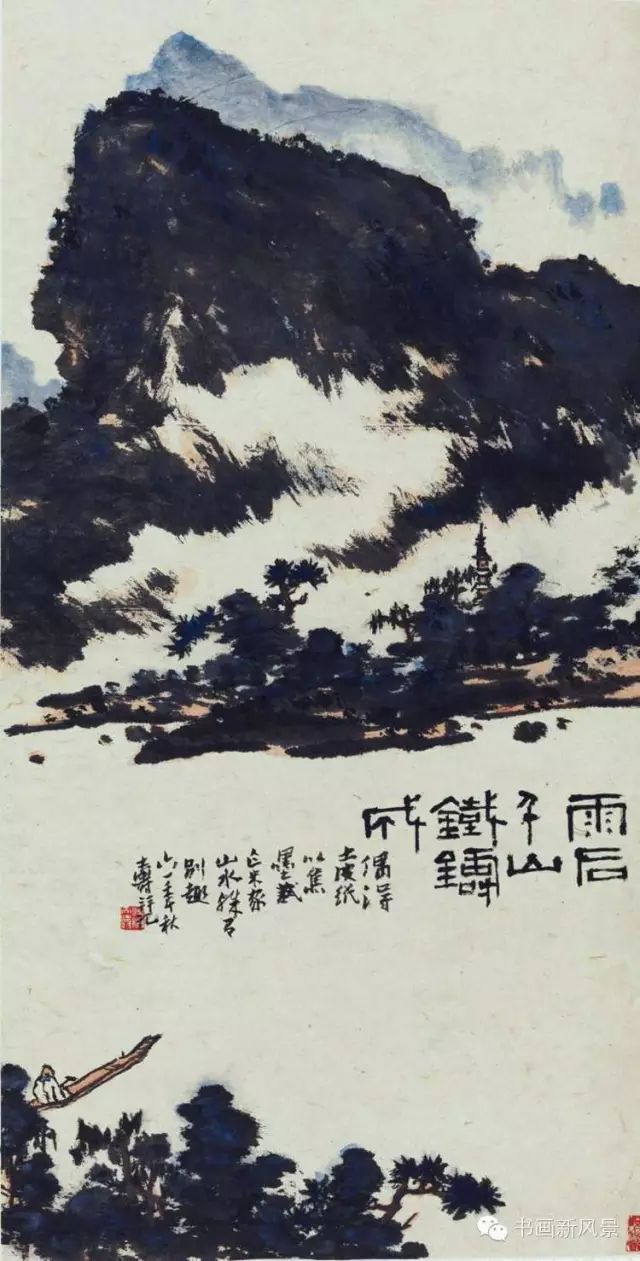 雨后
千山
鐵鑄
成
偶得
土皮紙
以焦
墨
米家
山水殊有
別趣
六一年秋
壽
书画新风景